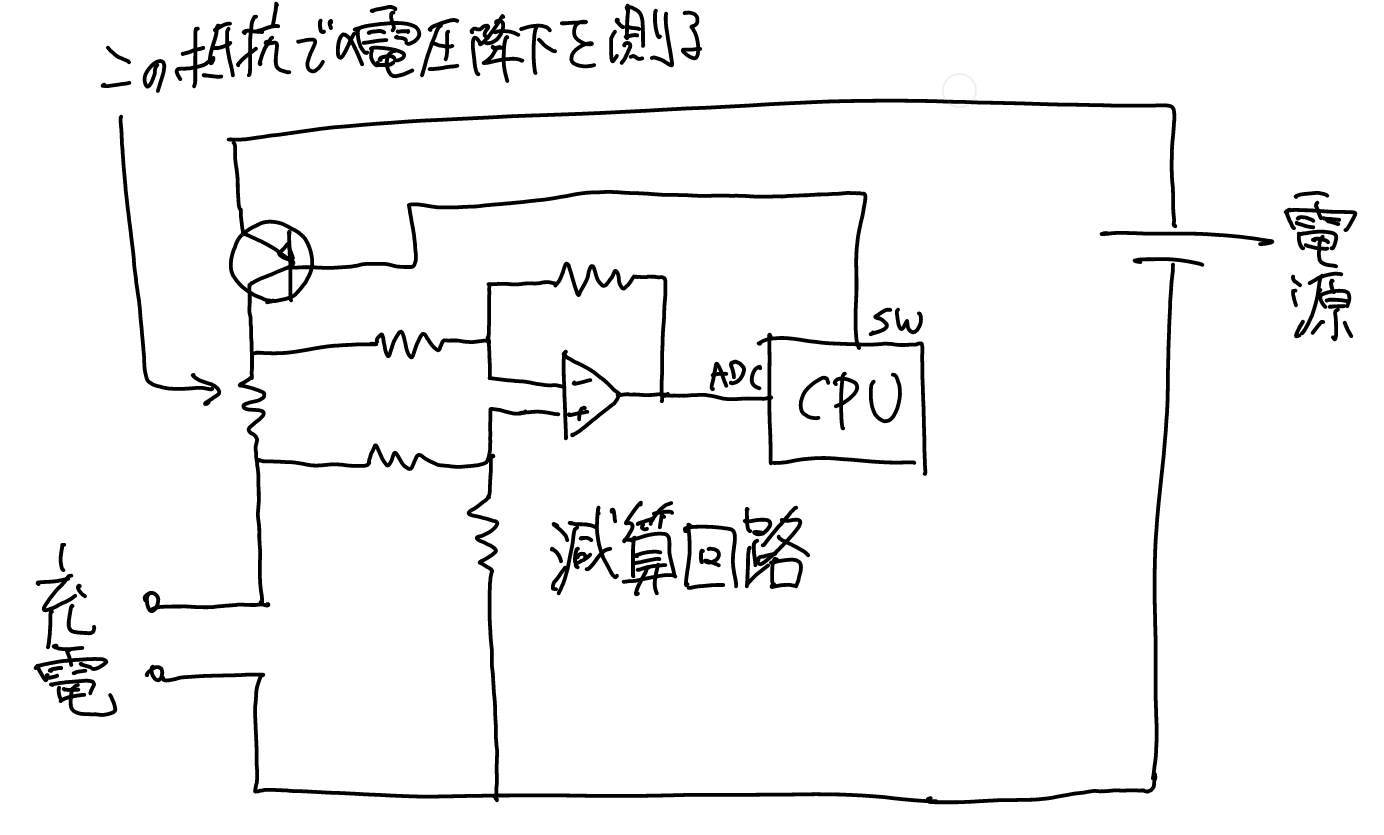 この抵抗での電圧降下を測る
電源
SW
ADC
CPU
−
+
減算回路
充電